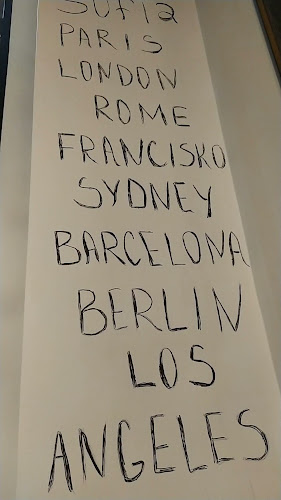 SOFIA
PARIS
LONDON
ROME
FRANCISKO
SYDNEY
BARCELONA
BERLIN
LOS
ANGELES